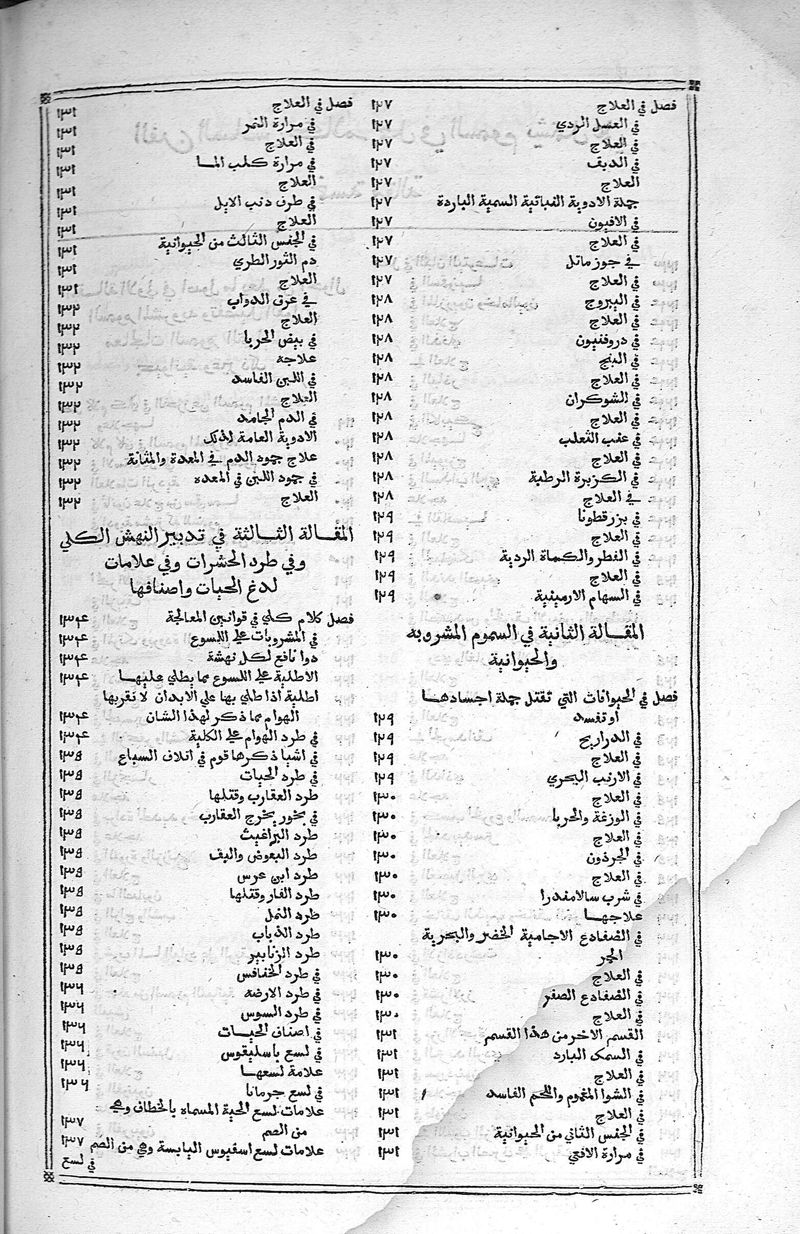 فصل في العلاج ١٢٧
في العسل الردي ١٢٧
في العلاج ١٢٧
في الدبق ١٢٧
العلاج ١٢٧
جملة الادوية النباتية السمية الباردة ١٢٧
في الافيون ١٢٧
في العلاج ١٢٧
في جوز ماثل ١٢٧
في العلاج ١٢٧
في اليبروج ١٢٨
في العلاج ١٢٨
في دروفنيون ١٢٨
في البنج ١٢٨
في العلاج ١٢٨
في الشوكران ١٢٨
في العلاج ١٢٨
في عنب الثعلب ١٢٨
في العلاج ١٢٨
في الكزبرة الرطبة ١٢٨
في العلاج ١٢٨
في بزرقطونا ١٢٩
في العلاج ١٢٩
في الفطر والكماة الردية ١٢٩
في العلاج ١٢٩
في السهام الارمينية ١٢٩
المقالة الثانية في السموم المشروبه
والحيوانية
فصل في الحيوانات التي تقتل جملة اجسادها
او تفسد ١٢٩
في الدراريح ١٢٩
في العلاج ١٢٩
في الارنب البحري ١٢٩
في العلاج ١٣٠
في الوزغة والحربا ١٣٠
في العلاج ١٣٠
في الجرذون ١٣٠
في العلاج ١٣٠
في شرب سالامندرا ١٣٠
علاجها ١٣٠
في الضفادع الاجامية الخضر والبحرية
الحمر ١٣٠
في العلاج ١٣٠
في الضفادع الصفر ١٣٠
في العلاج ١٣٠
القسم الاخر من هذا القسم ١٣١
في السمك البارد ١٣١
في العلاج ١٣١
في الشوا المغموم واللحم الفاسد ١٣١
في العلاج ١٣١
في الجنس الثاني من الحيوانية ١٣١
في مرارة الافعي ١٣١
فصل في العلاج ١٣١
في مرارة النمر ١٣١
في العلاج ١٣١
في مرارة كلب الما ١٣١
العلاج ١٣١
في طرف ذنب الايل ١٣١
العلاج ١٣١
في الجنس الثالث من الحيوانية ١٣١
دم الثور الطري ١٣١
العلاج ١٣١
في عرق الدواب ١٣٢
العلاج ١٣٢
في بيض الحربا ١٣٢
علاجه ١٣٢
في اللبن الفاسد ١٣٢
العلاج ١٣٢
في الدم الجامد ١٣٢
الادوية العامة لذلك ١٣٢
علاج جمود الدم في المعدة والمثانة ١٣٢
في جمود اللبن في المعده ١٣٢
العلاج ١٣٢
المقالة الثالثة في تدبير النهش الكلي
وفي طرد الحشرات وفي علامات
لدغ الحيات واصنافها
فصل كلام كلي في قوانين المعالجة ١٣٤
في المشروبات على اللسوع ١٣٤
دوا نافع لكل نهشة ١٣٤
الاطلية على اللسوع مما يطلي عليها ١٣٤
اطلية اذا طلي بها علي الابدان لا تقربها
الهوام مما ذكر لهذا الشان ١٣٤
في طرد الهوام على الكلية ١٣٤
في اشيا ذكرها قوم في اتلاف السباع ١٣٥
في طرد الحيات ١٣٥
طرد العقارب وقتلها ١٣٥
في بخور يخرج العقارب ١٣٥
طرد البراغيث ١٣٥
طرد البعوض والبق ١٣٥
طرد ابن عرس ١٣٥
طرد الفار وقتلها ١٣٥
طرد النمل ١٣٥
طرد الذباب ١٣٥
طرد الزنابير ١٣٥
في طرد الخفافس ١٣٥
في طرد الارضه ١٣٦
في طرد السوس ١٣٦
في اصناف الحيات ١٣٦
في لسع باسليقوس ١٣٦
علامة لسعها ١٣٦
في لسع جرمانا ١٣٦
علامات لسع الحية المسماه بالخطاف وهي
من الصم ١٣٧
علامات لسع اسفيوس اليابسة وهي من الصم ١٣٧
في لسع